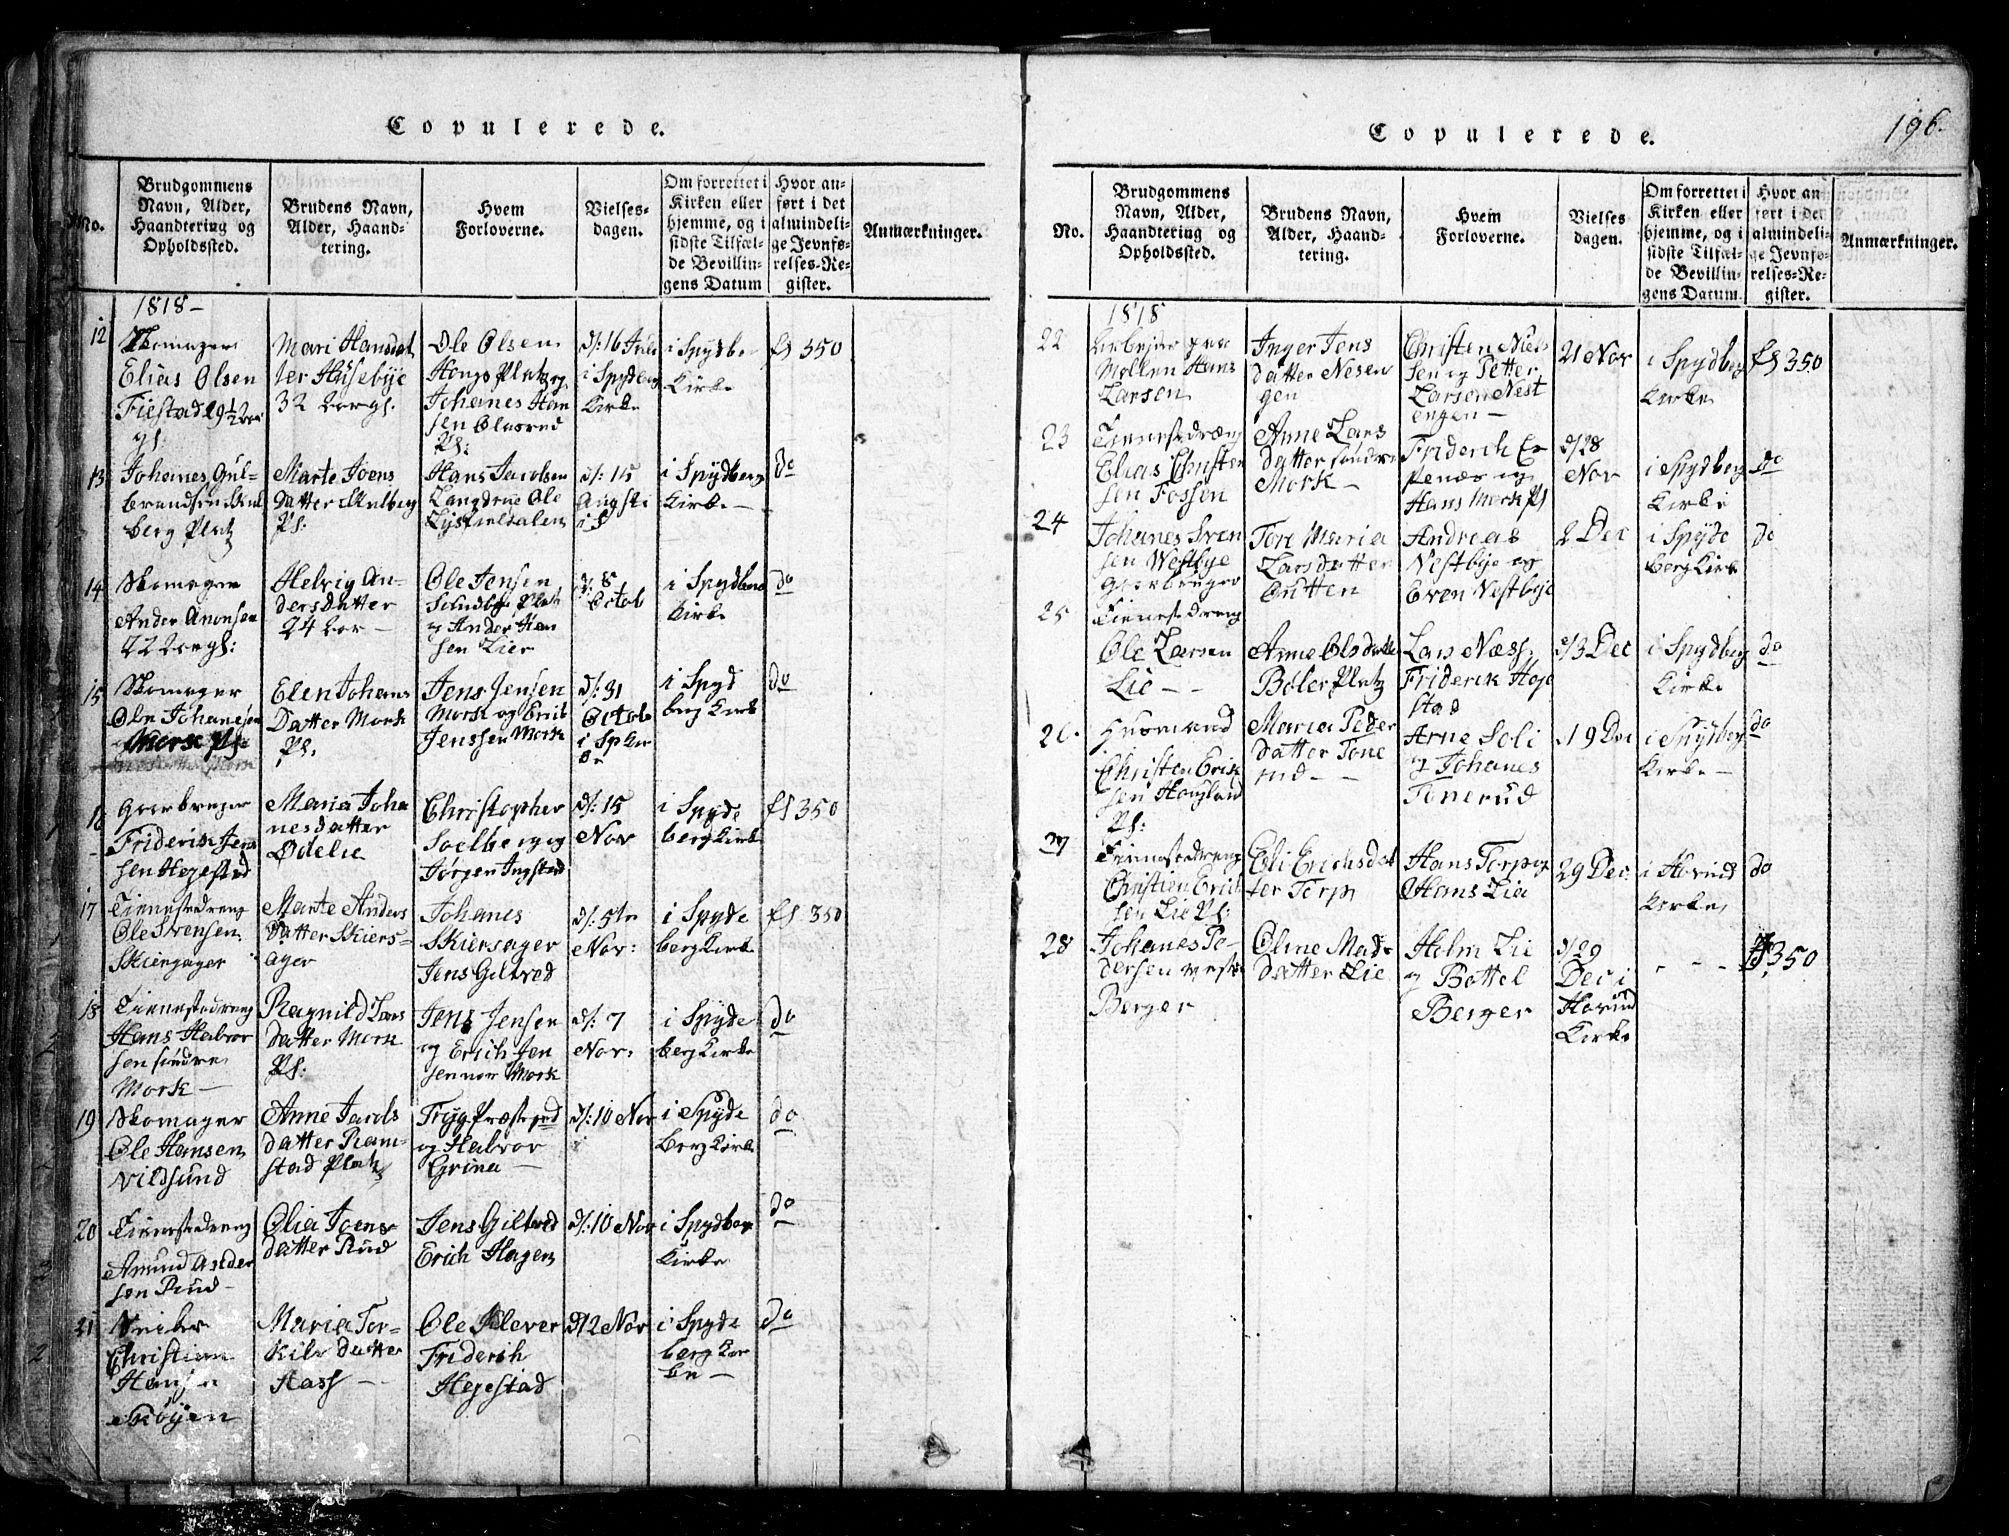 Copulerede.
No.
Brudgommens
Navn, Alder,
Haandtering og
Opholdssted.
Brudens Navn,
Alder, Haand-
tering.
Hvem
Forloverne.
Vielses-
dagen.
Om forrettet i
Kirken eller
hjemme, og i
sidste Tilfæl-
de Bevillin-
gens Datum
Hvor an-
ført i det
almindeli-
ge Jevnfø-
relses-Re-
gister.
Anmærkninger.
1818 –
12
Skomager
Elias Olsen
Fiestad 29 1/2
Mari Hansdat
ter Husebye
32
Ole Olsen
Hougs Platz og
Johanes Han
sen Olasrud
Ps:
d: 16
i Spydberg
Kirke
i Spydbe
Kirke
fs 350
13
Johanes Gul-
brandsen
berg Platz
Marte Joens
Datter Skulberg
Ps:
Hans Jacobsen
Langdrag Ole
d: 15
Augsti
i S
i Spydberg
Kirke –
do
14
Skomager
Ander Amonsen
22
Helvig An-
dersDatter
24 –
Ole Jensen
Platz
og Ander Han
sen Lier
d: 8
Octob
i Spydberg
Kirke
do
15
Skomager
Ole Johanesen
Mork Ps:
Elen Johanes
Datter Mork
Ps.
Jens Jensen
Mork og Erik
Jenssen Mork
d: 31
Octob
i Sp Kir
ke
i Spyd
berg Kirk
do
16
Gaarbruger
Friderik Jens
sen Hegestad
Maria Joha
nesdatter
Ødelie
Christopher
Soelberg og
Jørgen Ingstad
d: 15
Nov
i Spyde
berg Kirke
fs 350
17
Tienestedreng
Ole Svensen
Skiersager
Marte Anders
Datter Skiers-
ager
Johanes
Skiersager
Jens Giltved
d: 5te
Nov:
i Spyde
berg Kirke
fs. 350
18
Tienestedreng
Hans Halvor
sen søndre
Mork –
Ragnild Lars
datter Mork
Ps:
Jens Jensen
og Erich Jen
sen nor Mork
d: 7
Nov:
i Spyde
berg Kirke
do
19
Skomager
Ole Hansen
Vildsund
Anne Jacobs
datter Ram-
stad Platz
Tryg Præsterud
og Halvor
Grina –
d: 10 Nov
i Spyde
berg Kirke
do
20
Tienestedreng
Amund
sen Rud –
Olia Joens
datter Rud
Jens Giltved
Erich Hagen
d: 10 Nov
i Spydberg
Kirke
do
21
Christian
Hansen
Skøyen
Maria Tor-
kils datter
Hass –
Ole Klever
Friderich
Hegestad
d 12 Nov
i Spyde
berg Kir
ke –
do
Copulerede.
196.
No.
Brudgommens
Navn, Alder,
Haandtering og
Opholdssted.
Brudens Navn,
Alder, Haand-
tering.
Hvem
Forloverne.
Vielses
dagen.
Om forrettet i
Kirken eller
hjemme, og i
sidste Tilfæl-
de Bevillin-
gens Datum.
Hvor an
ført i det
almindeli-
ge Jevnfø-
relses-Re-
gister.
Anmærkninger.
1818
22
Arbejder paa
Møllen Hans
Larsen
Inger Jens
datter Nesen
gen
Christen Niel
sen og Petter
Larsen Nest
engen –
21 Nov
i Spydberg
Kirke
fs 350
23
Tienestedreng
Elias Christen
sen Fossen
Anne Lars
datter søndre
Mork –
Friderich Es
penæs og
Hans Mork Ps
d/28
Nov
i Spydberg
Kirke
do
24
Johanes Sven
sen Westbye
Gaarbruger
Tore Maria
Larsdatter
Butten
Andreas
Nestbye og
Even Nestbye
2 Dec
i Spyde
berg Kirke
do
25
Tienestedreng
Ole Larsen
Lie – –
Anne Olsdatter
Bøler Platz
Lars Næss
Friderik Heje
stad
d/3 Dec
i Spydberg
Kirke
do
26.
Huusmand
Christen Erik
sen Hougland
Ps:
Maria Peder
datter Tone
rud – –
Arne Soli
og Johanes
Tonerud
d 19 Dec
i Spydberg
Kirke –
do
27
Tienestedreng
Christien Erich
sen Lie Ps:
Eli Erichsdat
ter Torp
Hans Torp og
Hans Lia
29 Dec
i Hovind
Kirke
do
28
Johanes Pe-
dersen vestre
Berger
Oline Mads
datter Lie
Holm Lie
og Bottel
Berger
d/29
Dec i
Hovind
Kirke
- - -
fs 350